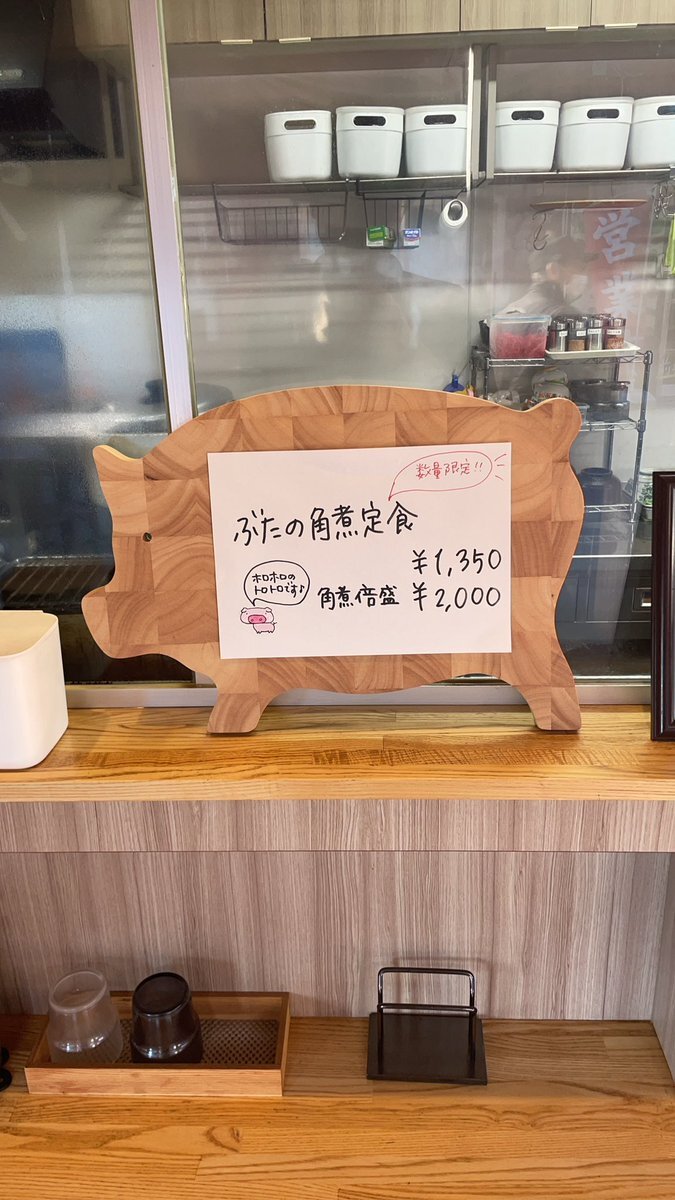 数量限定!!
ぶたの角煮定食
¥1,350
ホロホロの
トロトロです♪
角煮倍盛 ¥2,000
営業